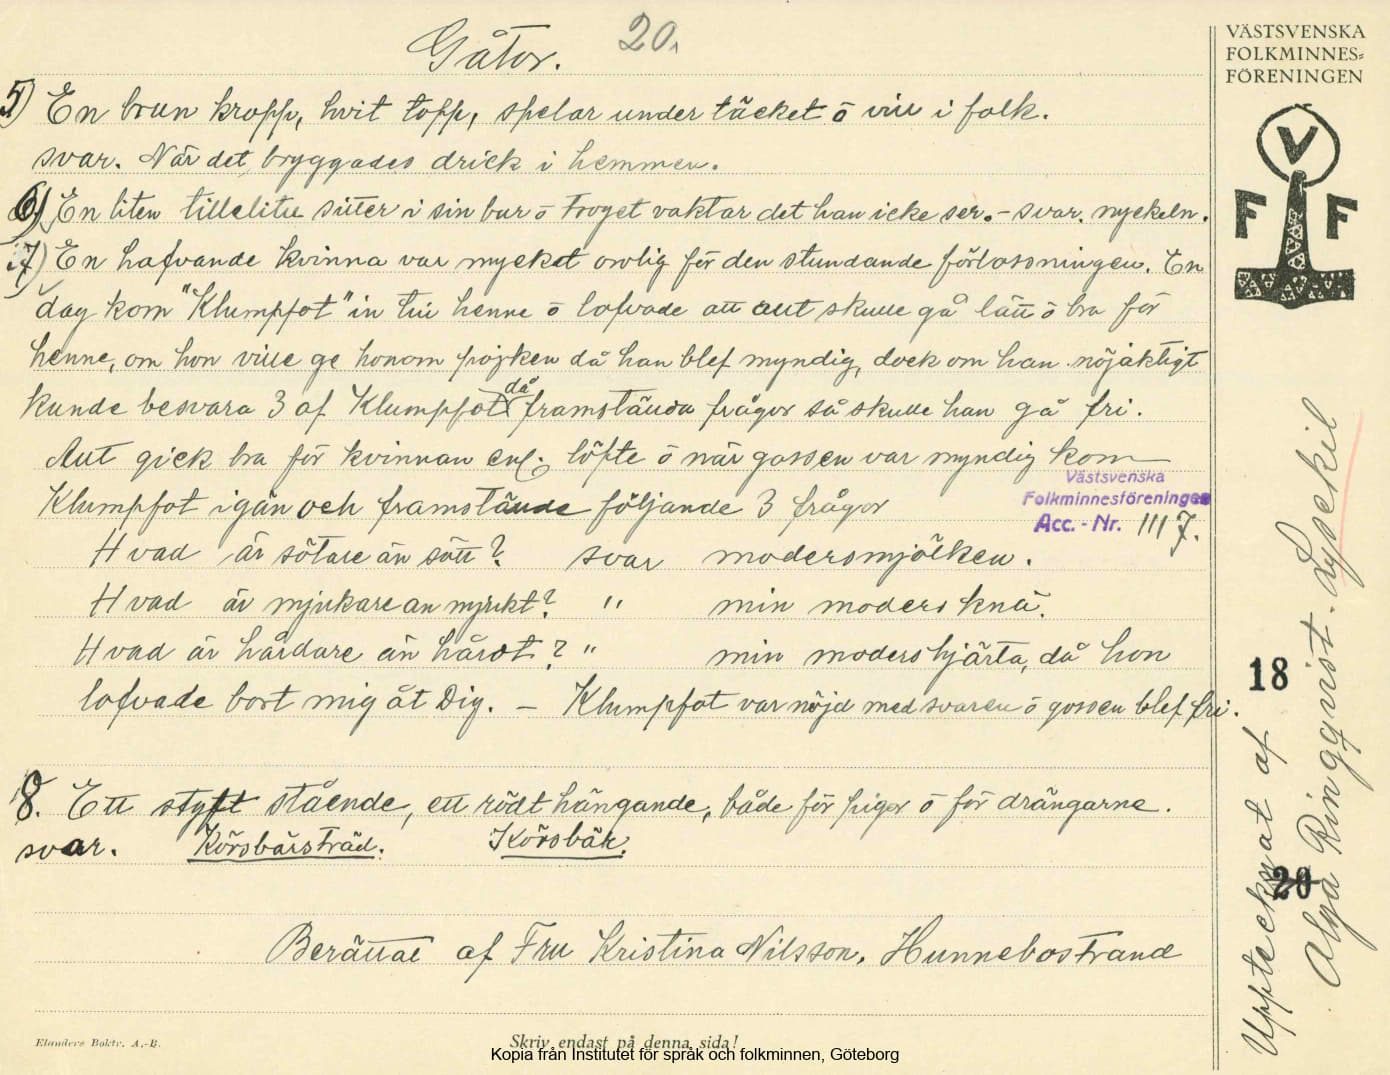 Gåtor.
20.
VÄSTSVENSKA
FOLKMINNES=
FÖRENINGEN
V
F F
5) En brun kropp, hvit topp, spelar under täcket ō vill i folk.
svar. När det bryggades drick i hemmen.
6) En liten tillelitu sitter i sin bur ō troget vaktar det han icke ser. – svar. nyckeln.
7) En hafvande kvinna var mycket orolig för den stundande förlossningen. En
dag kom "Klumpfot" in till henne ō lofvade att allt skulle gå lätt ō bra för
henne, om hon ville ge honom pojken då han blef myndig, dock om han nöjaktigt
kunde besvara 3 af Klumpfot då framstälda frågor så skulle han gå fri.
Allt gick bra för kvinnan enl. löfte ō när gossen var myndig kom
Klumpfot igän och framstälde följande 3 frågor
Västsvenska
Folkminnesföreningen
Acc. - Nr. 1117.
Hvad är sötare än sött? svar modersmjölken.
Hvad är mjukare än mjukt? " min moders knä.
Hvad är hårdare än hårdt? " min moders hjärta, då hon
lofvade bort mig åt Dig. – Klumpfot var nöjd med svaren ō gossen blef fri.
8. Ett styft stående, ett rödt hängande, både för pigor ō för drängarne.
svar. Körsbärsträd. Körsbär.
Berättat af Fru Kristina Nilsson, Hunnebostrand
18
20
Upptecknat af
Alga Ringqvist. Lysekil
Elanders Boktr. A.-B.
Skriv endast på denna sida!
Kopia från Institutet för språk och folkminnen, Göteborg